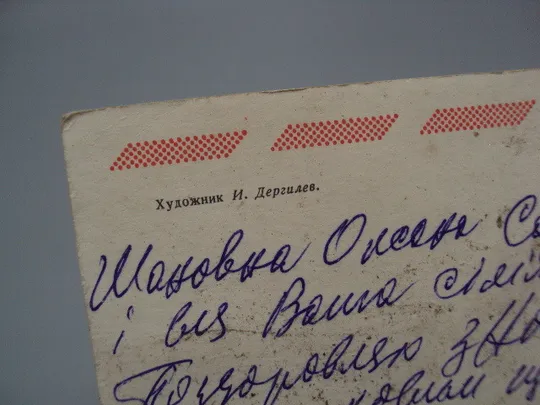 Художник И. Дергилев.
Шановна Оксен
і вся Ваша сім
Поздоровляю з Но